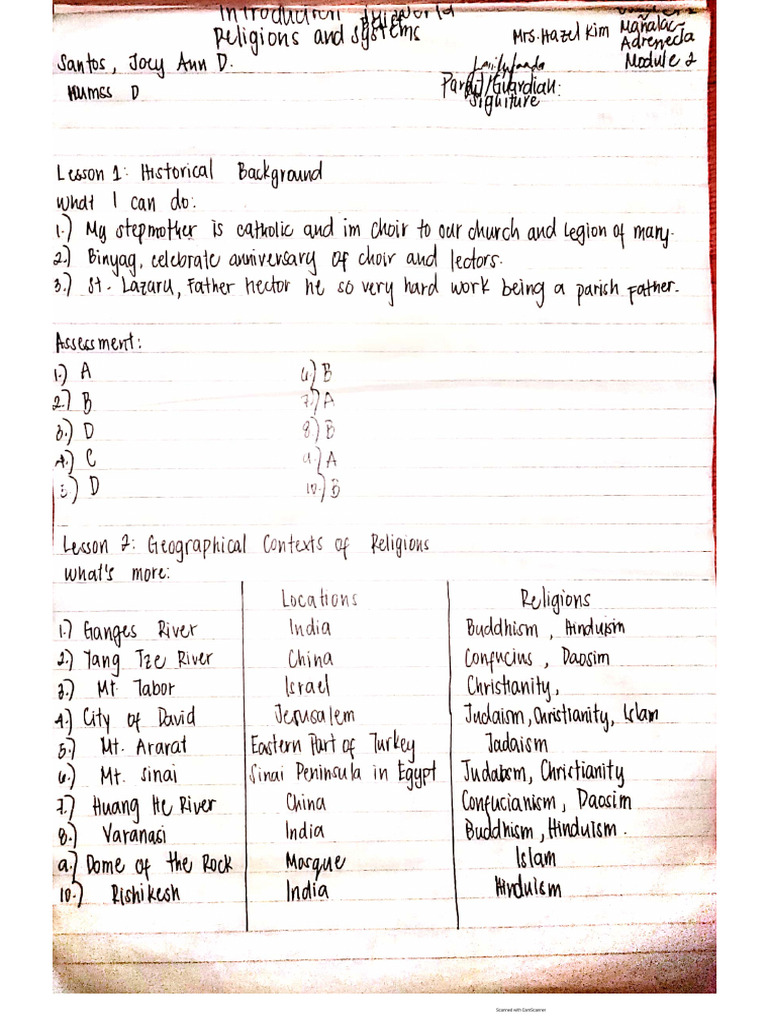 Introduction World
Religions and systems
Mrs. Hazel Kim Mañalac-
Adrenecla
Module 2
Santos, Joey Ann D.
Humss D
Parent/Guardian:
Signiture
Lesson 1: Historical Background
What I can do:
1.) My stepmother is catholic and im choir to our church and legion of mary.
2.) Binyag, celebrate anniversary of choir and lectors.
3.) St. Lazaru, Father Hector he so very hard work being a parish father.
Assessment:
1.) A
2.) B
3.) D
4.) C
5.) D
6.) B
7.) A
8.) B
9.) A
10.) B
Lesson 2: Geographical Contexts of Religions
What's more:
Locations Religions
1.) Ganges River India Buddhism, Hinduism
2.) Yang Tze River China Confucius, Daosim
3.) Mt Tabor Israel Christianity,
4.) City of David Jerusalem Judaism, Christianity, Islam
5.) Mt. Ararat Eastern Part of Turkey Jadaism
6.) Mt. Sinai Sinai Peninsula in Egypt Judaism, Christianity
7.) Huang He River China Confucianism, Daosim
8.) Varanasi India Buddhism, Hinduism.
9.) Dome of the Rock Mosque Islam
10.) Rishikesh India Hinduism
Scanned with CamScanner